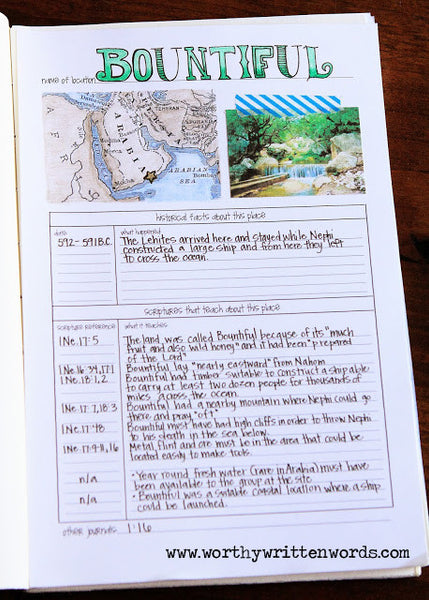 BOUNTIFUL
name of location:
AFR
TEHERAN
PERSIA
AFGHANISTAN
ARABIA
Mecca
Mocha
ARABIAN
SEA
Bombay
historical facts about this place
date
what happened
592-591 B.C.
The Lehites arrived here and stayed while Nephi
constructed a large ship and from here they left
to cross the ocean.
scriptures that teach about this place
scripture reference
what it teaches
1 Ne. 17:5
The land was called Bountiful because of its "much
fruit and also wild honey" and it had been "prepared
of the Lord"
1 Ne. 16:34, 17:1
Bountiful lay "nearly eastward" from Nahom
1 Ne. 18:1,2
Bountiful had timber suitable to construct a ship able
to carry at least two dozen people for thousands of
miles across the ocean.
1 Ne. 17:7, 18:3
Bountiful had a nearby mountain where Nephi could go
there and pray "oft"
1 Ne. 17:48
Bountiful must have had high cliffs in order to throw Nephi
to his death in the sea below.
1 Ne. 17:9-11, 16
Metal, flint and ore must be in the area that could be
located easily to make tools.
n/a
• Year round fresh water (rare in Arabia) must have
been available to the group at the site
n/a
• Bountiful was a suitable coastal location where a ship
could be launched.
other journals
1:16
www.worthywrittenwords.com